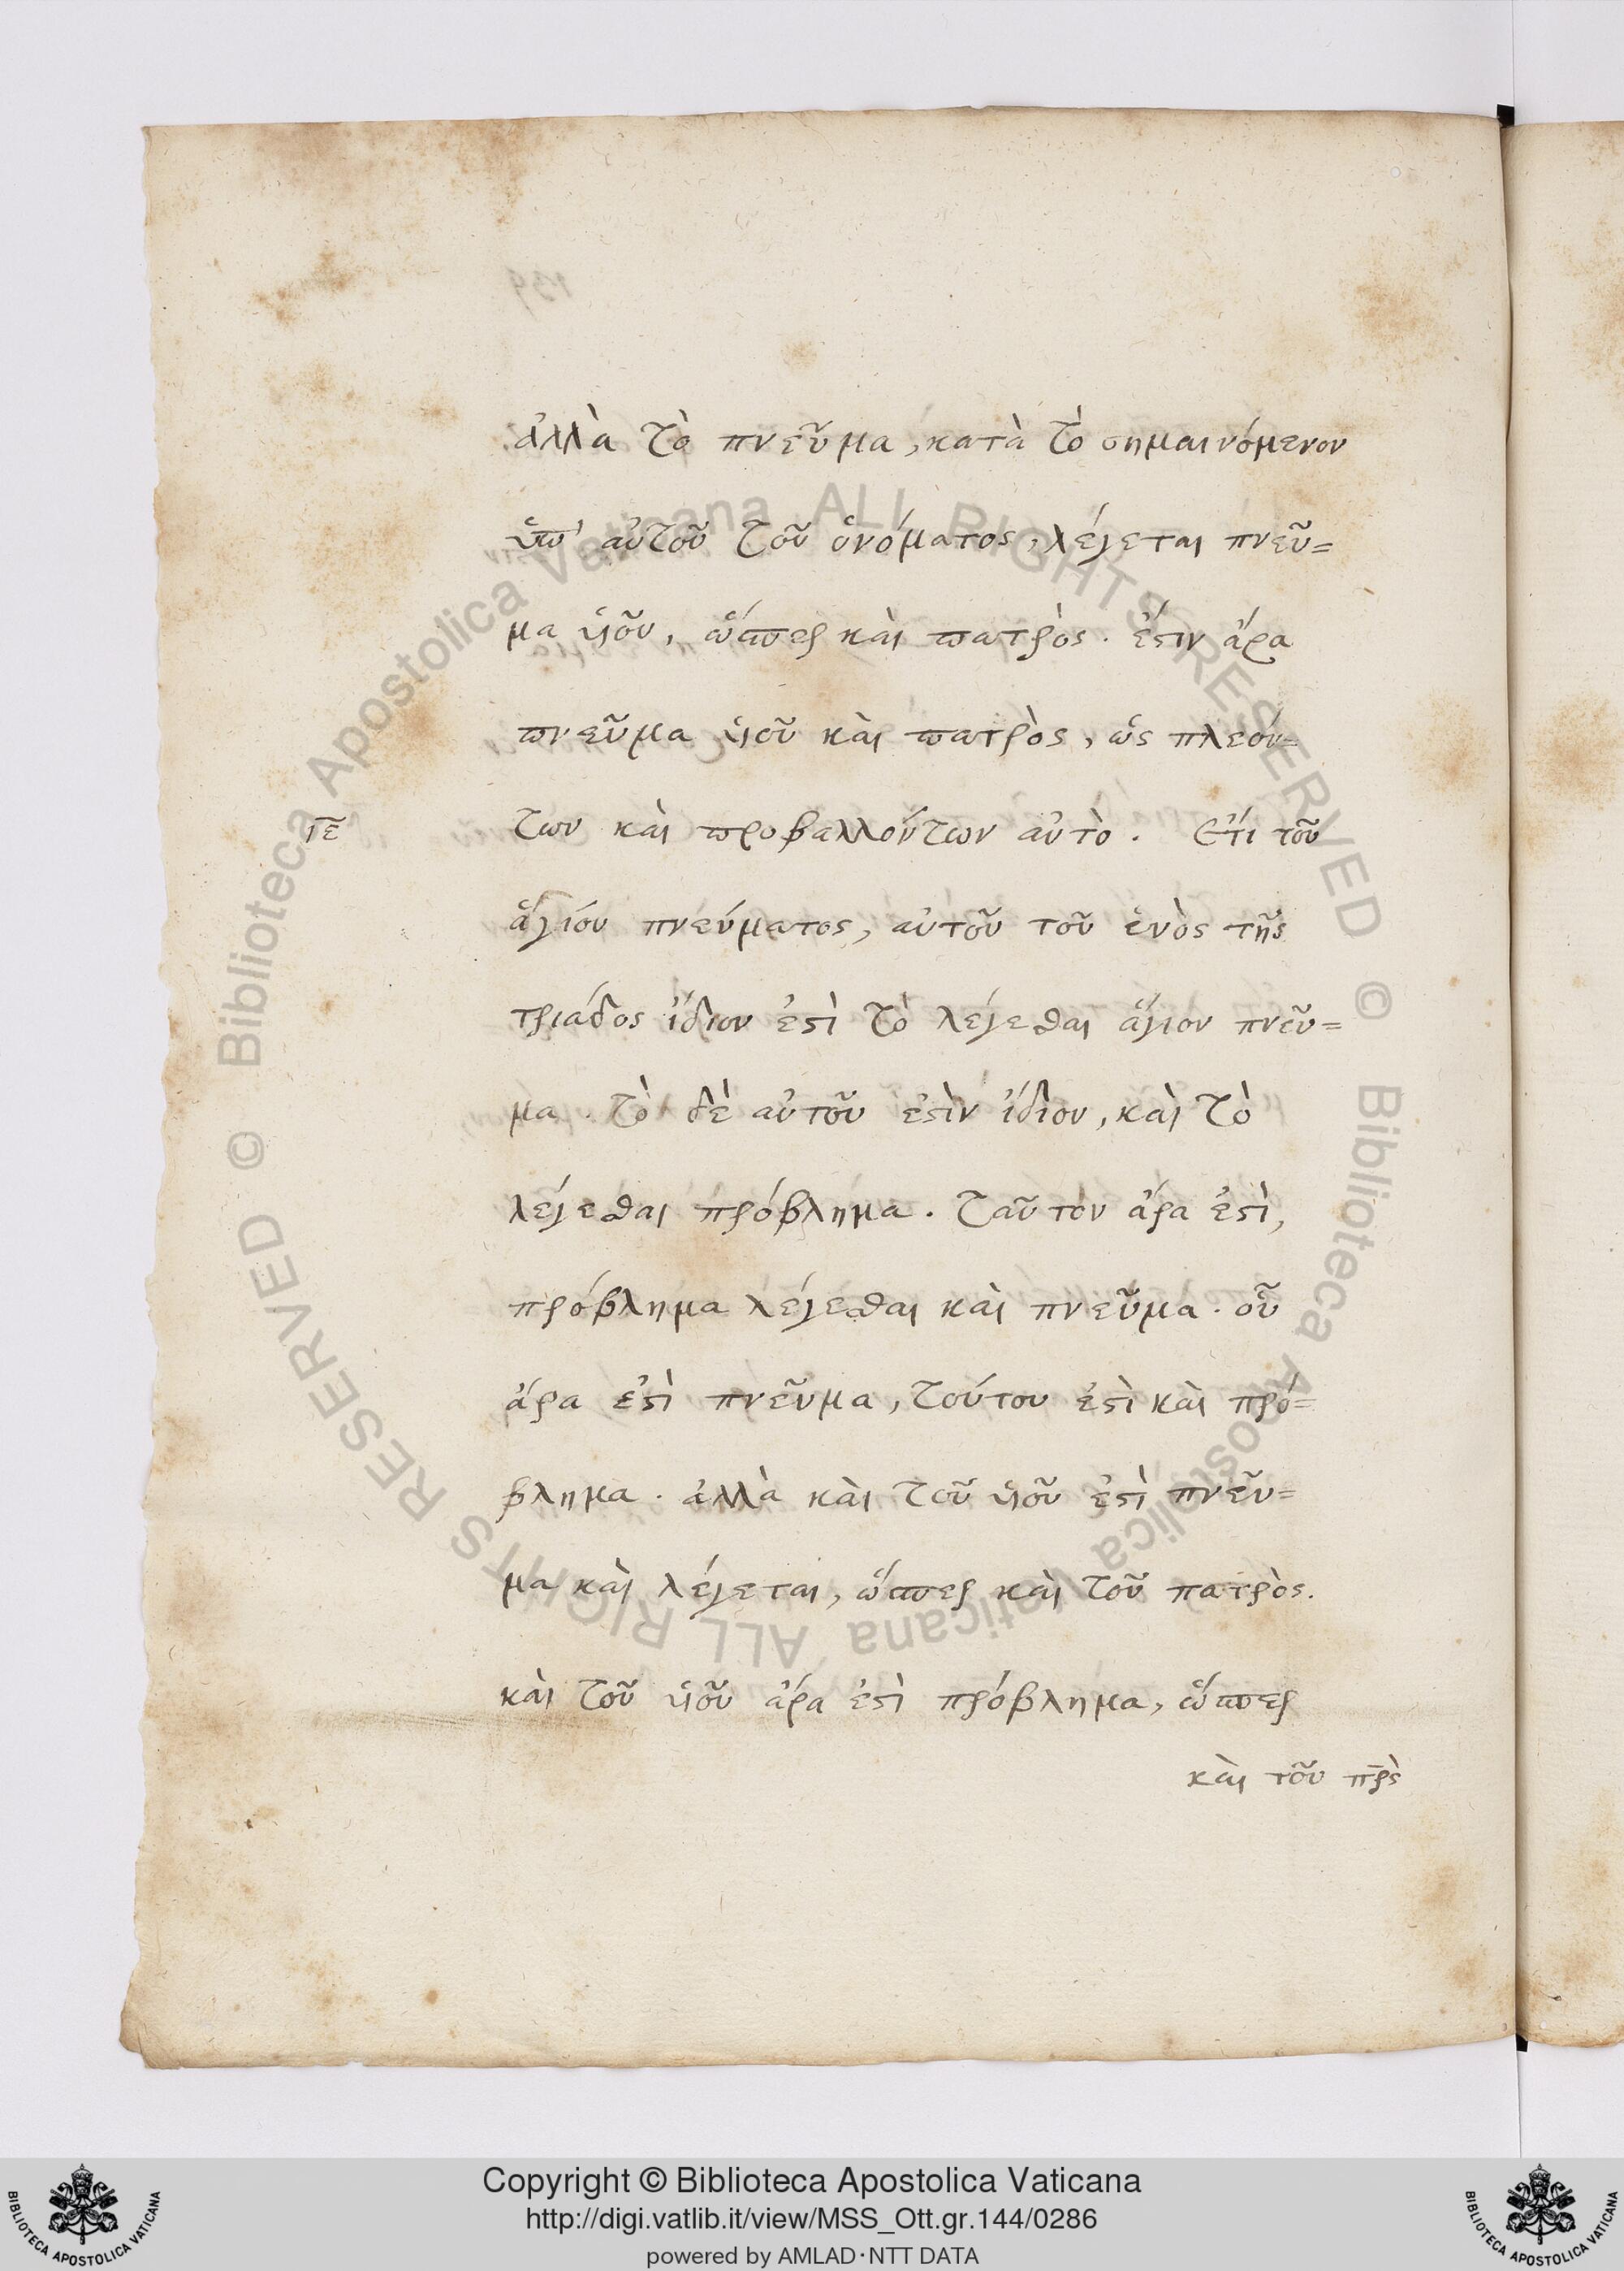 139
ἀλλὰ τὸ πνεῦμα, κατὰ τὸ σημαινόμενον
ὑπ' αὐτοῦ τοῦ ὀνόματος, λέγεται πνεῦ=
μα ὑιοῦ, ὥσπερ καὶ πατρὸς. ἐστιν ἄρα
πνεῦμα ὑιοῦ καὶ πατρὸς, ὡς πλεόν=
ιε των καὶ προβαλλόντων αὐτὸ. Ετι τοῦ
ἁγίου πνεύματος, αὐτοῦ τοῦ ἑνὸς τῆς
τριάδος ἴδιον ἐστὶ τὸ λέγεσθαι ἅγιον πνεῦ=
μα. τὸ δὲ αὐτοῦ ἐστὶν ἴδιον, καὶ τὸ
λέγεσθαι πρόβλημα. ταῦτὸν ἄρα ἐστὶ,
πρόβλημα λέγεσθαι καὶ πνεῦμα. οὗ
ἄρα ἐστὶ πνεῦμα, τούτου ἐστὶ καὶ πρό=
βλημα. ἀλλὰ καὶ τοῦ ὑιοῦ ἐστὶ πνεῦ=
μα καὶ λέγεται, ὥσπερ καὶ τοῦ πατρὸς.
καὶ τοῦ ὑιοῦ ἄρα ἐστὶ πρόβλημα, ὥσπερ
καὶ τοῦ πρ̅ὸς
© Biblioteca Apostolica Vaticana ALL RIGHTS RESERVED © Biblioteca Apostolica Vaticana ALL RIGHTS RESERVED
Copyright © Biblioteca Apostolica Vaticana
http://digi.vatlib.it/view/MSS_Ott.gr.144/0286
powered by AMLAD·NTT DATA
BIBLIOTECA APOSTOLICA VATICANA
BIBLIOTECA APOSTOLICA VATICANA